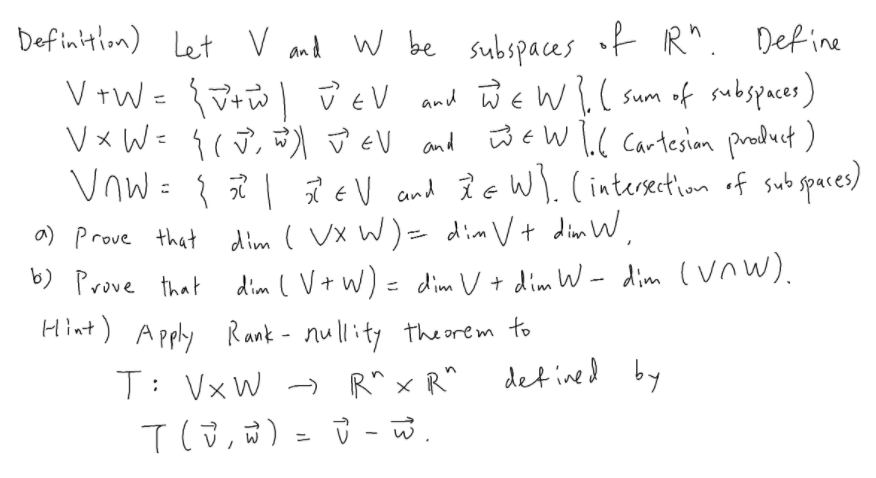 Definition) Let V and W be subspaces of ℝⁿ. Define
V + W = { v⃗+w⃗ | v⃗ ∈ V and w⃗ ∈ W }. ( sum of subspaces)
V × W = { (v⃗, w⃗) | v⃗ ∈ V and w⃗ ∈ W }. ( Cartesian product )
V ∩ W = { x⃗ | x⃗ ∈ V and x⃗ ∈ W }. ( intersection of subspaces)
a) Prove that dim ( V × W ) = dim V + dim W.
b) Prove that dim ( V + W ) = dim V + dim W − dim ( V ∩ W ).
Hint) Apply Rank - nullity theorem to
T : V × W → ℝⁿ × ℝⁿ defined by
T ( v⃗, w⃗ ) = v⃗ − w⃗.